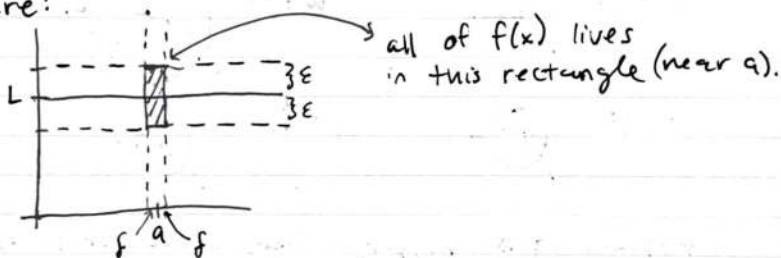 all of f(x) lives
in this rectangle (near a).
}ε
L
}ε
a